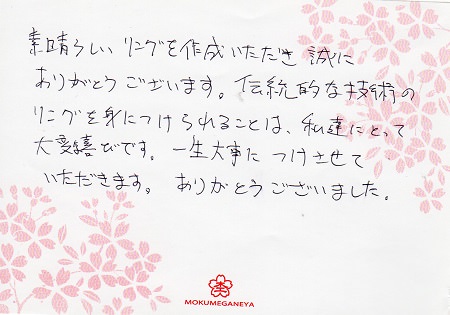 素晴らしいリングを作成いただき誠に
ありがとうございます。伝統的な技術の
リングを身につけられることは、私達にとって
大変嬉びです。一生大事につけさせて
いただきます。ありがとうございました。
MOKUMEGANEYA